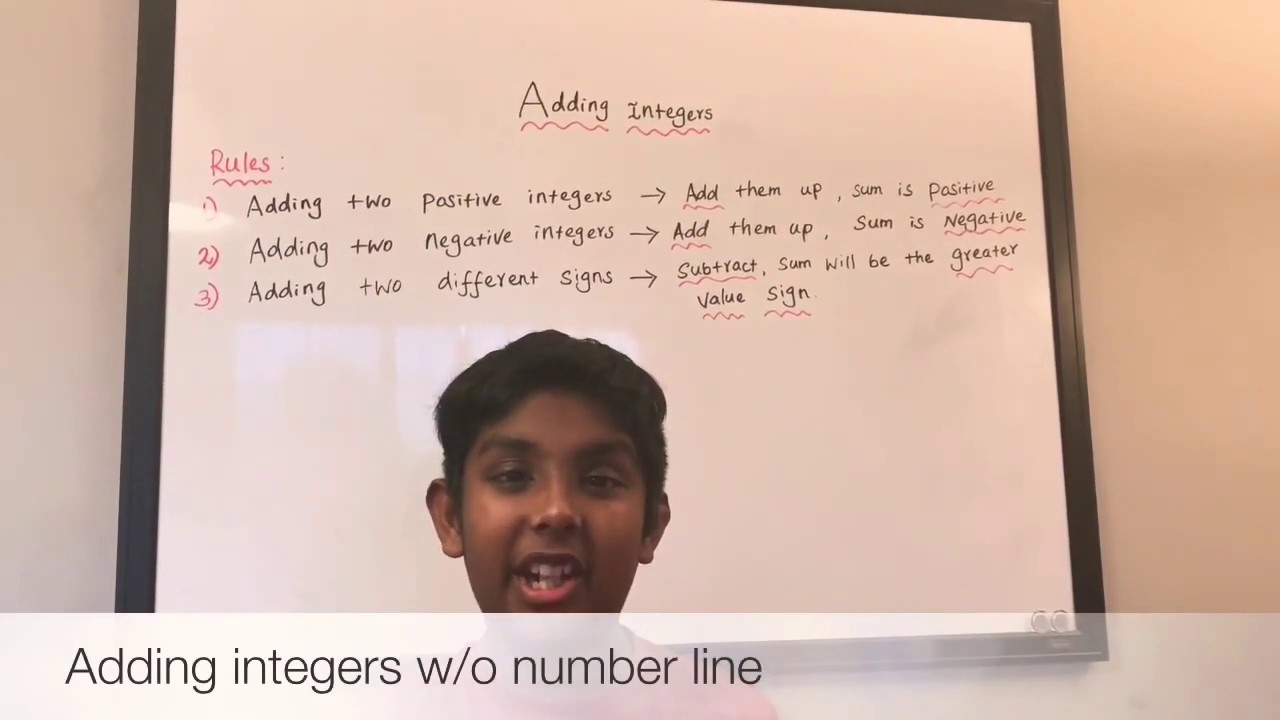 Adding Integers
Rules:
1) Adding two positive integers → Add them up, sum is positive
2) Adding two negative integers → Add them up, Sum is Negative
3) Adding two different signs → Subtract, sum will be the greater
value sign.
Adding integers w/o number line